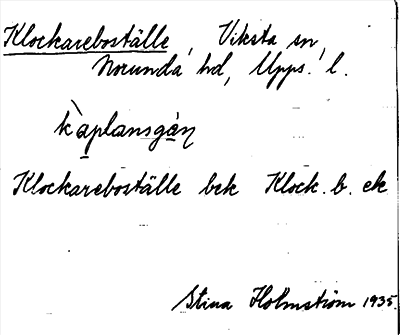 Klockareboställe, Viksta sn,
Norunda hd, Upps. l.
kàplansgán
Klockareboställe bek Klock. b. ek
Stina Holmström 1935.